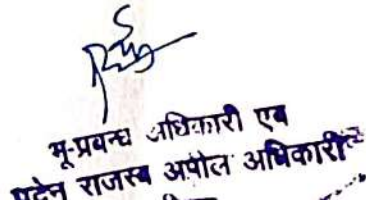 भू-प्रबन्ध अधिकारी एव
पदेन राजस्व अपील अधिकारी